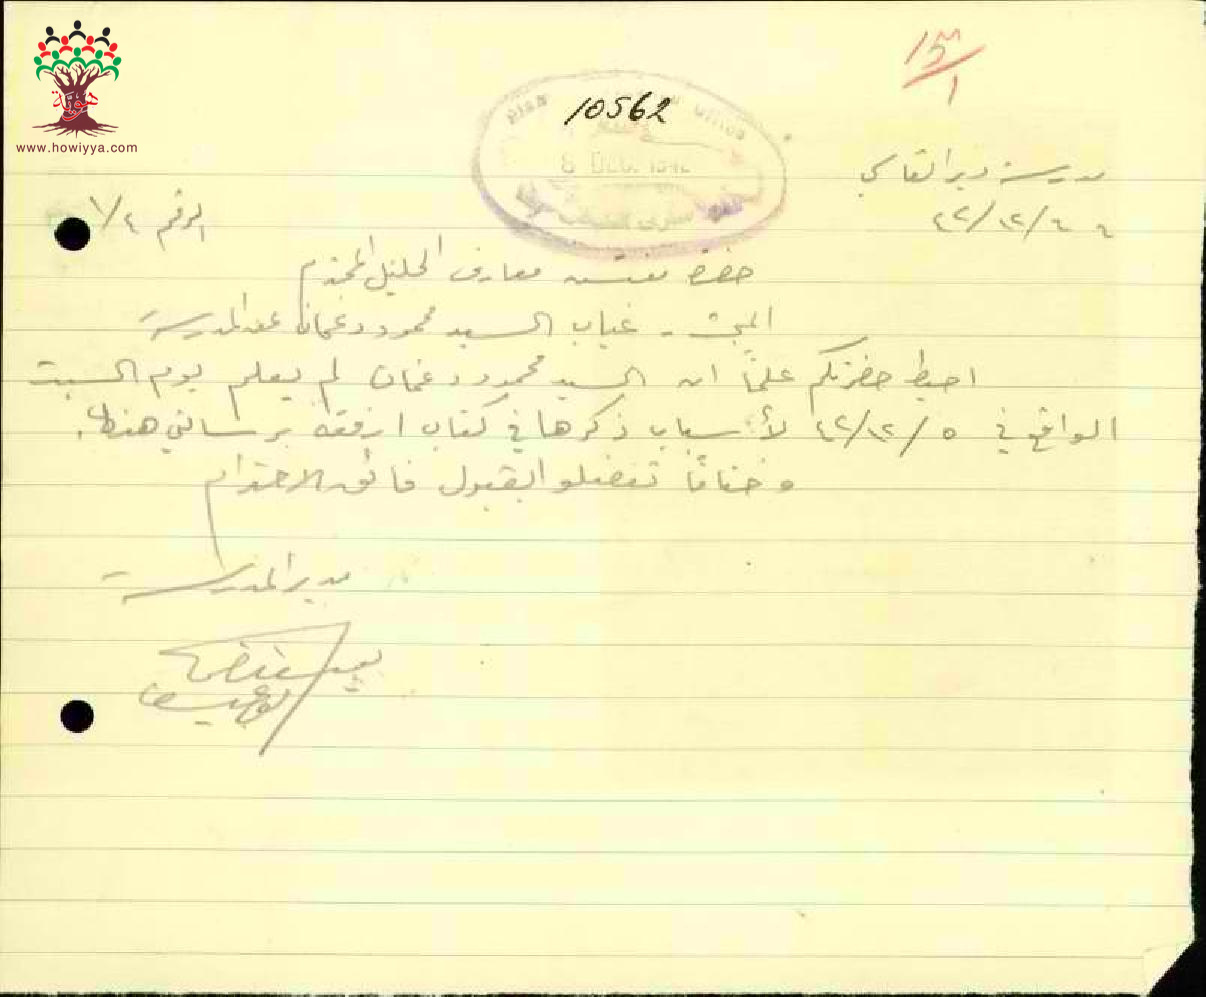 هوية
www.howiyya.com
10562
8 DEC. 1942
مدرسة دير القاسي
الرقم ١/٤
٤٢/١٢/٦
حضرة مفتش معارف الجليل المحترم
المبحث - غياب السيد محمود دغمان عن المدرسة
احيط حضرتكم علماً ان السيد محمود دغمان لم يعلم يوم السبت
الواقع في ٤٢/١٢/٥ لأسباب ذكرها في كتاب ارفقه برسالتي هذه.
وختاماً تفضلوا بقبول فائق الاحترام
مدير المدرسة